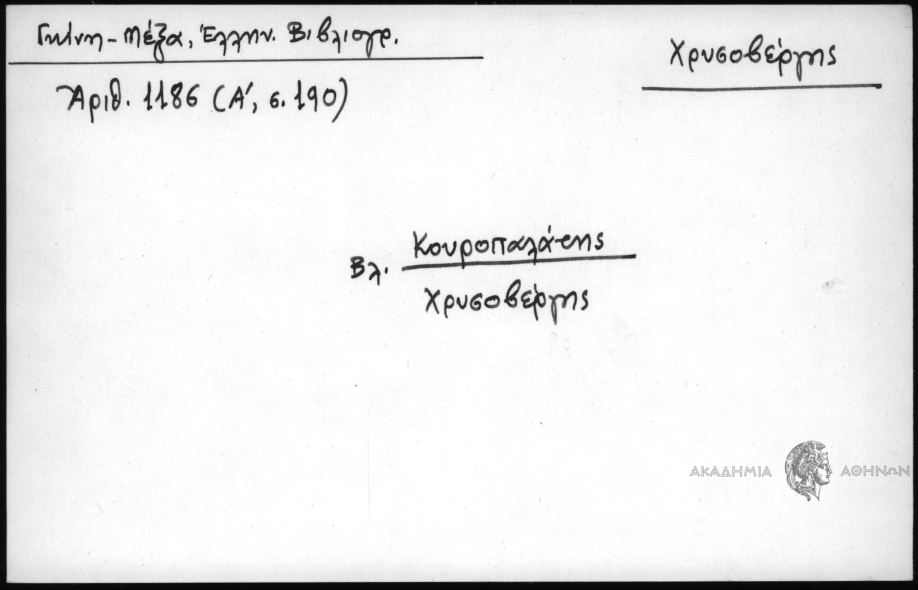 Γκίνη - Μέξα, Ἑλλην. Βιβλιογρ.
Χρυσοβέργης
Ἀριθ. 1186 (Α', σ. 190)
Βλ. Κουροπαλάτης
Χρυσοβέργης
ΑΚΑΔΗΜΙΑ ΑΘΗΝΩΝ